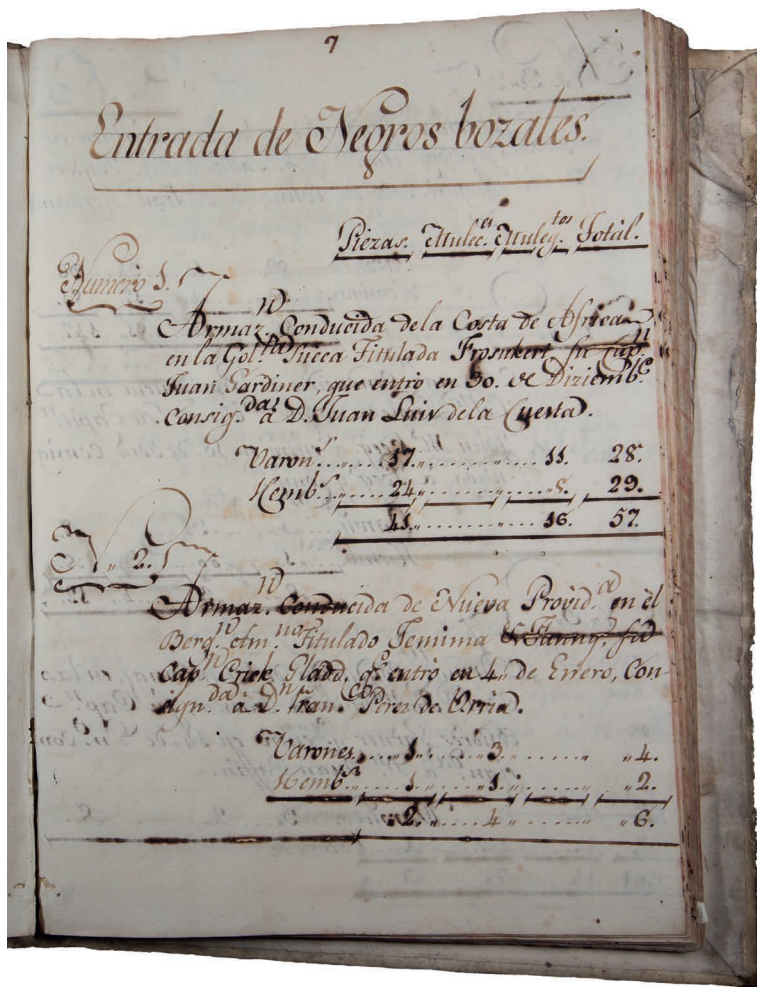 7
Entrada de Negros bozales.
Piezas. Mulec.es Muleq.tos Total.
Numero 1.
Armaz.n Conducida dela Costa de Africa
en la Gol.ta Sueca Titulada su Cap.n
Juan Gardiner, que entró en 30. de Diziemb.e
Consig.da á D. Juan Luis dela Cuesta.
Varon.s 17. 11. 28.
Hemb.s 24 8. 29.
41. 16. 57.
N. 2.
Armaz.n Conducida de Nueva Provid.a en el
Berg.n Am.no Titulado Jemima & Fanny, su
Cap.n Gladd. q.e entró en 4,, de Enero, Con-
sign.da á D.n Fran.co Perez de Urria.
Varones 1. 3. 4.
Hemb.s 1. 1. 2.
2. 4. 6.